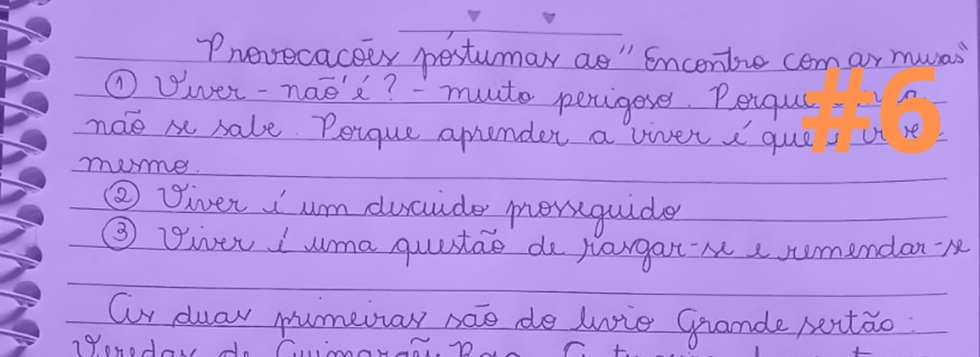 Provocações póstumas ao "Encontro com as musas"
① Viver - não é? - muito perigoso. Porque
#6
não se sabe. Porque aprender a viver é que
mesmo.
② Viver é um descuido prosseguido
③ Viver é uma questão de rasgar-se e remendar-se
As duas primeiras são do livro Grande sertão:
Veredas, de Guimarães Rosa.